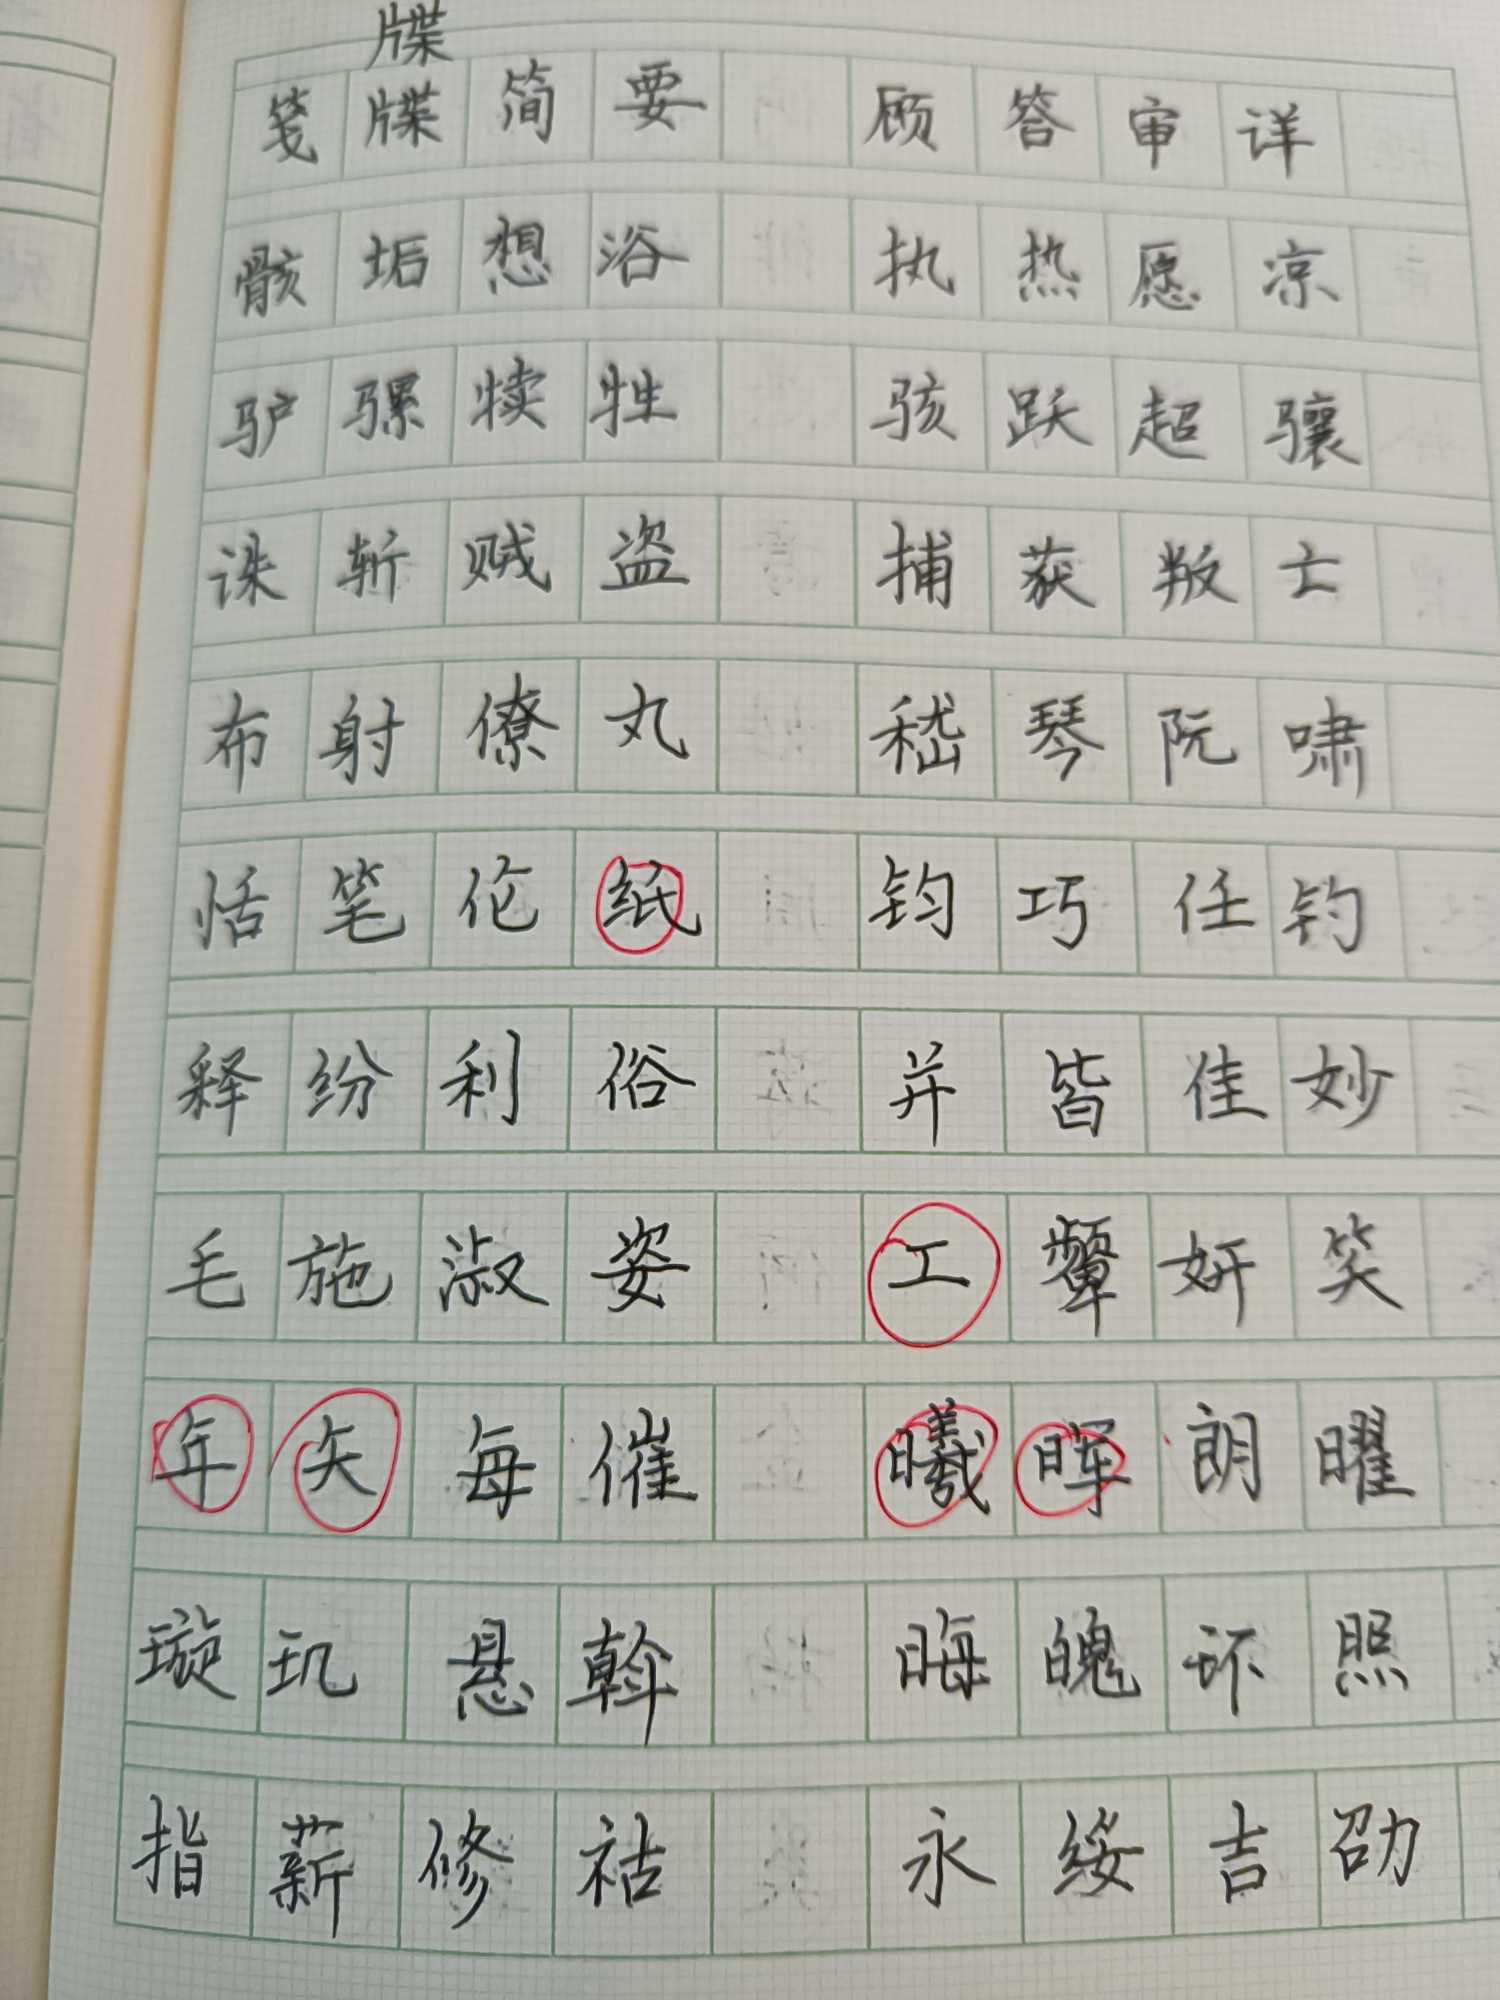 牒
笺牒简要 顾答审详
骸垢想浴 执热愿凉
驴骡犊牲 骇跃超骧
诛斩贼盗 捕获叛亡
布射僚丸 嵇琴阮啸
恬笔伦纸 钧巧任钓
释纷利俗 并皆佳妙
毛施淑姿 工颦妍笑
年矢每催 曦晖朗曜
璇玑悬斡 晦魄环照
指薪修祜 永绥吉劭